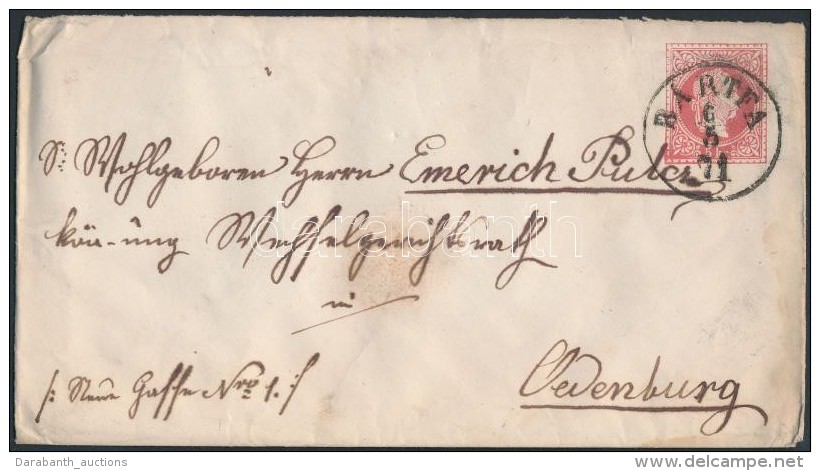 BARTFA
6
5
71
S: Wohlgeboren Herrn Emerich Pulcz
kön-ung Wechselgerichtsrath
in
/: Neue Gasse Nro 1. :/
Oedenburg
darabanth
Darabanth_auctions
delcampe.net